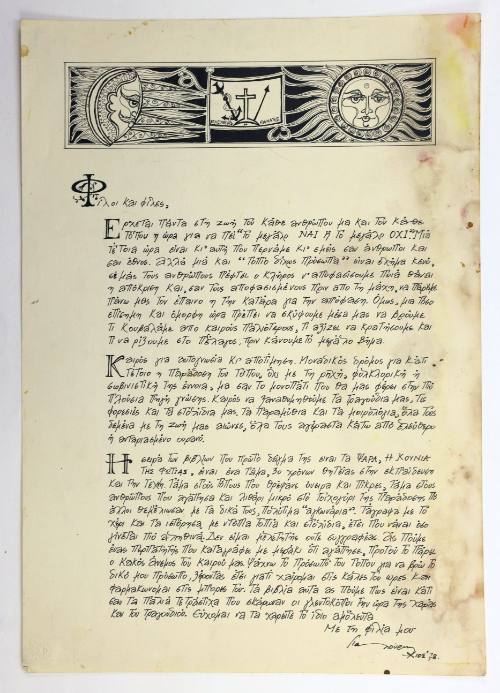 Φίλοι και φίλες,
Έρχεται πάντα στη ζωή του κάθε ανθρώπου μα και του κάθε
τόπου η ώρα για να πει "το μεγάλο ΝΑΙ ή το μεγάλο ΟΧΙ". Μια
τέτοια ώρα είναι κι' αυτή που περνάμε κι' εμείς σαν άνθρωποι και
σαν έθνος. Αλλά μιά και "τόπιο δίχως πρόσωπα" είναι σχήμα κενό,
σε μας τους ανθρώπους πέφτει ο κλήρος ν' αποφασίσουμε ποιά θάναι
η απόκριση και, σαν τους αποφασισμένους πριν απο τη μάχη, να πάρουμε
πάνω μας τον έπαινο η την κατάρα για την απόφαση. Όμως, μια τόσο
επίσημη και όμορφη ώρα πρέπει να σκύψουμε μέσα μας να βρούμε
τι κουβαλάμε απο καιρούς παλιότερους, τι αξίζει να κρατήσουμε και
τι να ρίξουμε στο πέλαγος, πριν κάνουμε το μεγάλο βήμα.
Καιρός για αυτογνωσία κι' αποτίμηση. Μοναδικός δρόμος για κάτι
τέτοιο η παράδοση του τόπου, όχι με τη ρηχή, φολκλορική ή
σωβινιστική της έννοια, μα σαν το μονοπάτι που θα μας φέρει στην πιό
πλούσια πηγή γνώσης. Καιρός να ξαναθυμηθούμε τα τραγούδια μας, τις
φορεσιές και τα στολίδια μας, τα παραμύθια και τα μοιρολόγια, όλα τους
δεμένα με τη ζωή μας αιώνες, όλα τους αχόρταστα κάτω απο ξάστερο
ή ανταριασμένο ουρανό.
Η σειρά των βιβλίων που πρώτο δείγμα της είναι τα ΨΑΡΑ, Η ΧΟΥΝΙΑ
ΤΗΣ ΦΩΤΙΑΣ, είναι ένα τάμα, 30 χρόνων θητείας στην εκπαίδευση
και την τέχνη. Τάμα στους τόπους που θρέψανε όνειρα και πίκρες, τάμα στους
ανθρώπους που αγάπησα και λιθάρι μικρό στο τοιχογύρι της παράδοσης που
άλλοι θεμέλιωσαν με τα δικά τους, πολύτιμα "αγκωνάρια". Τάγραψα με το
χέρι και τα ιστόρησα με ντόπια τοπία και στολίδια, έτσι που νάναι όσο
γίνεται πιό αληθινά. Δεν είμαι μελετητής ούτε συγγραφέας. Ας πούμε
ένας περπατητής που καταγράφει με μεράκι ότι αγάπησε, προτού το πάρει
ο κακός άνεμος του καιρού μας. Ψάχνω το πρόσωπο του τόπου για να βρώ το
δικό μου πρόσωπο, ζώντας έτσι γιατί χαίρομαι στις καλές του ώρες και
φαρμακώνομαι στις μπόρες του. Τα βιβλία αυτά ας πούμε πως είναι κάτι
σαν τα παλιά τετράστιχα που σκάρωναν οι γλεντοκόποι την ώρα της χαράς
και του τραγουδιού. Εύχομαι να τα χαρείτε το ίδιο αμόλευτα
Με τη φιλία μου
Χίος '78.